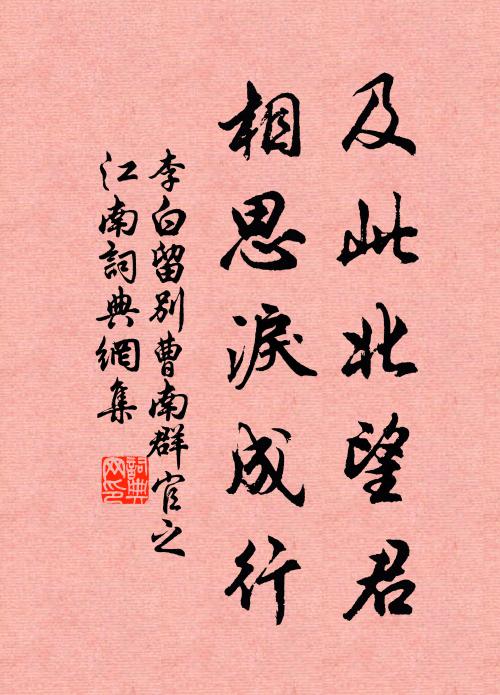 及此北望君
相思淚成行
李白留別曹南群官之
江南詞典網集
詞典
网印